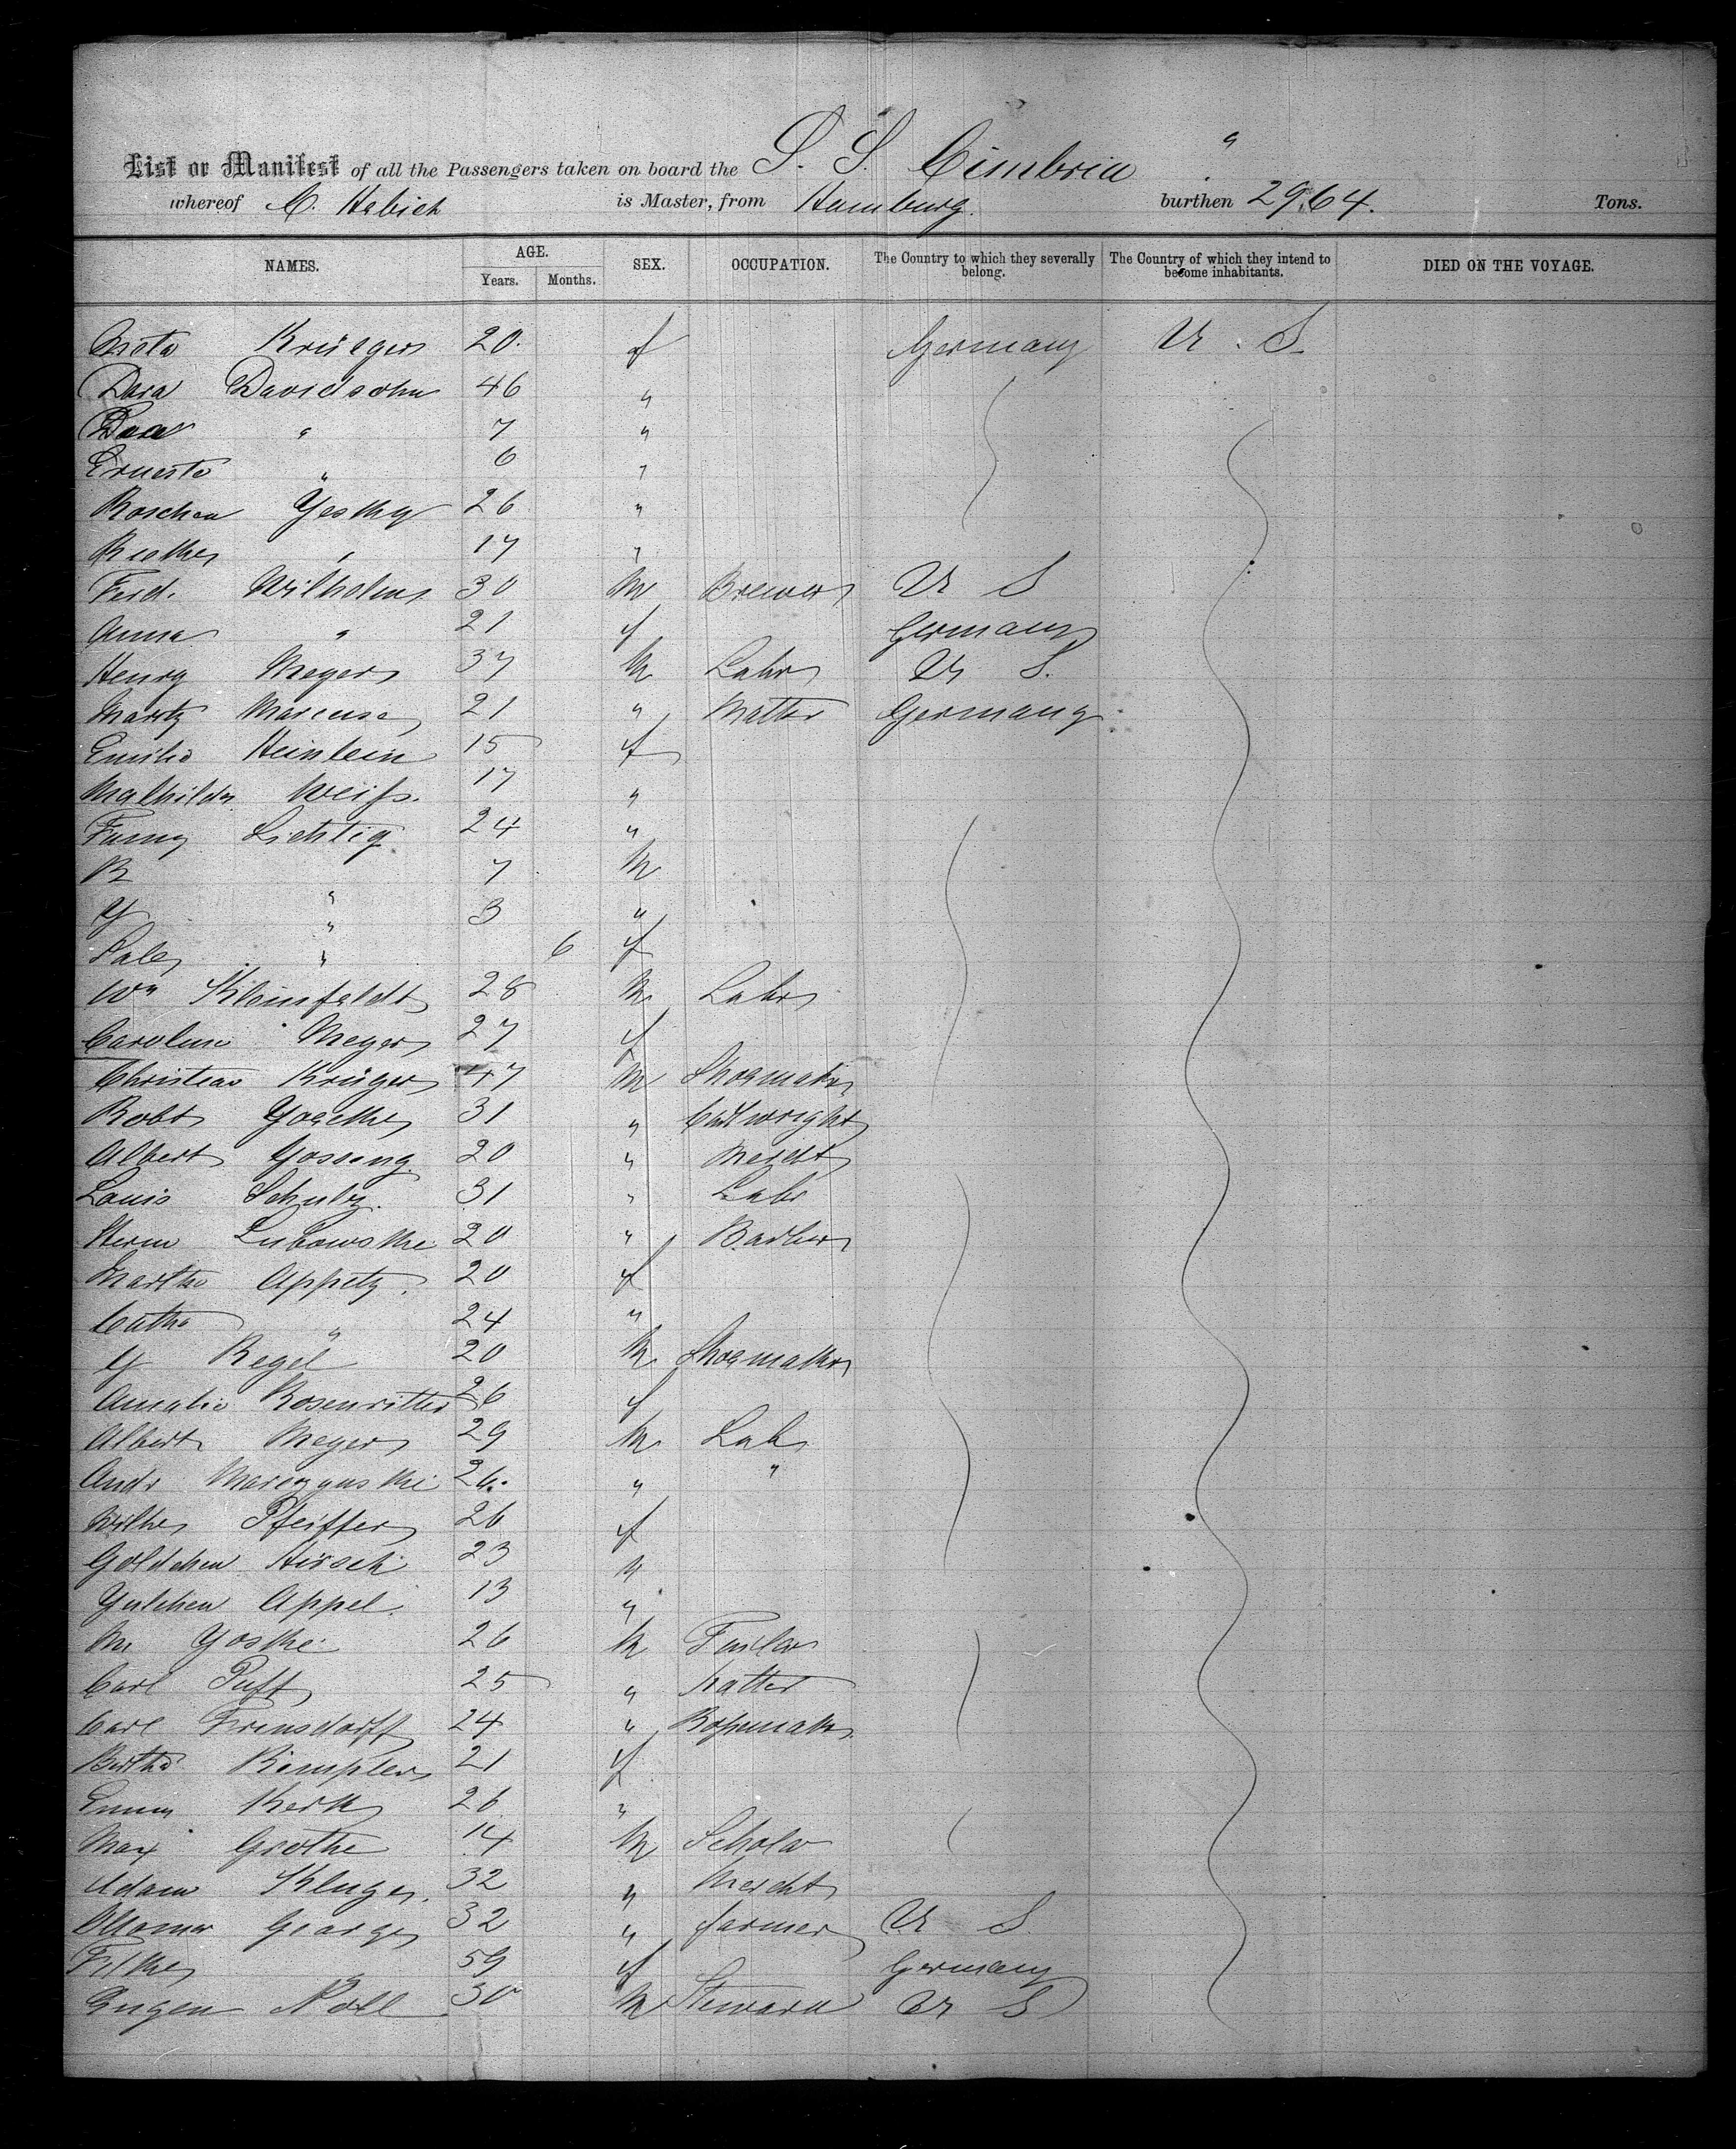 List or Manifest of all the Passengers taken on board the S. S. Cimbria "
whereof C. Hebich is Master, from Hamburg. burthen 2964. Tons.
NAMES. AGE. Years. Months. SEX. OCCUPATION. The Country to which they severally belong. The Country of which they intend to become inhabitants. DIED ON THE VOYAGE.
Krüger 20. f Germany U. S.
Dora Davidsohn 46 "
" 7 "
Ernesto " 6 "
Roschen Yesky 26 "
" 17 "
Ferd. Wilhelms 30 M Brewer U S
Anna " 21 f Germany
Henry Meyer 37 M Labr U S.
Moritz Marcuse 21 " Germany
Emilie Heinlein 15 f
Mathilde Weiss. 17 "
Fanny Lichtig 24 "
R " 7 M
Y " 3 "
" 6 f
Wm Kleinfeldt 28 M Labr
Caroline Meyer 27 f
Christian Krüger 47 M Shoemaker
Robt 31 " Cartwright
Albert 20 " Mercht
Louis Schulz. 31 " Labr
Herm Lubowski 20 " Barber
Martha Appetz. 20 f
Catha " 24 "
Y Regel 20 M Shoemaker
Amalie Rosenritter 26 f
Albert Meyer 29 M Lab
Andr 26. " "
Pfeiffer 26 f
Goldchen Hirsch 23 "
Yulchen Appel. 13 "
M Yoske 26 M
Carl Puft 25 "
Carl Frensdorff 24 " Ropemak
Bertha Rimpler 21 f
Emma Kerk 26 "
Max Grothe 14 M Scholar
Adam Kluge. 32 " Mercht
George 32 " farmer U S.
" 59 f Germany
Eugen Noll 30 M Steward U S